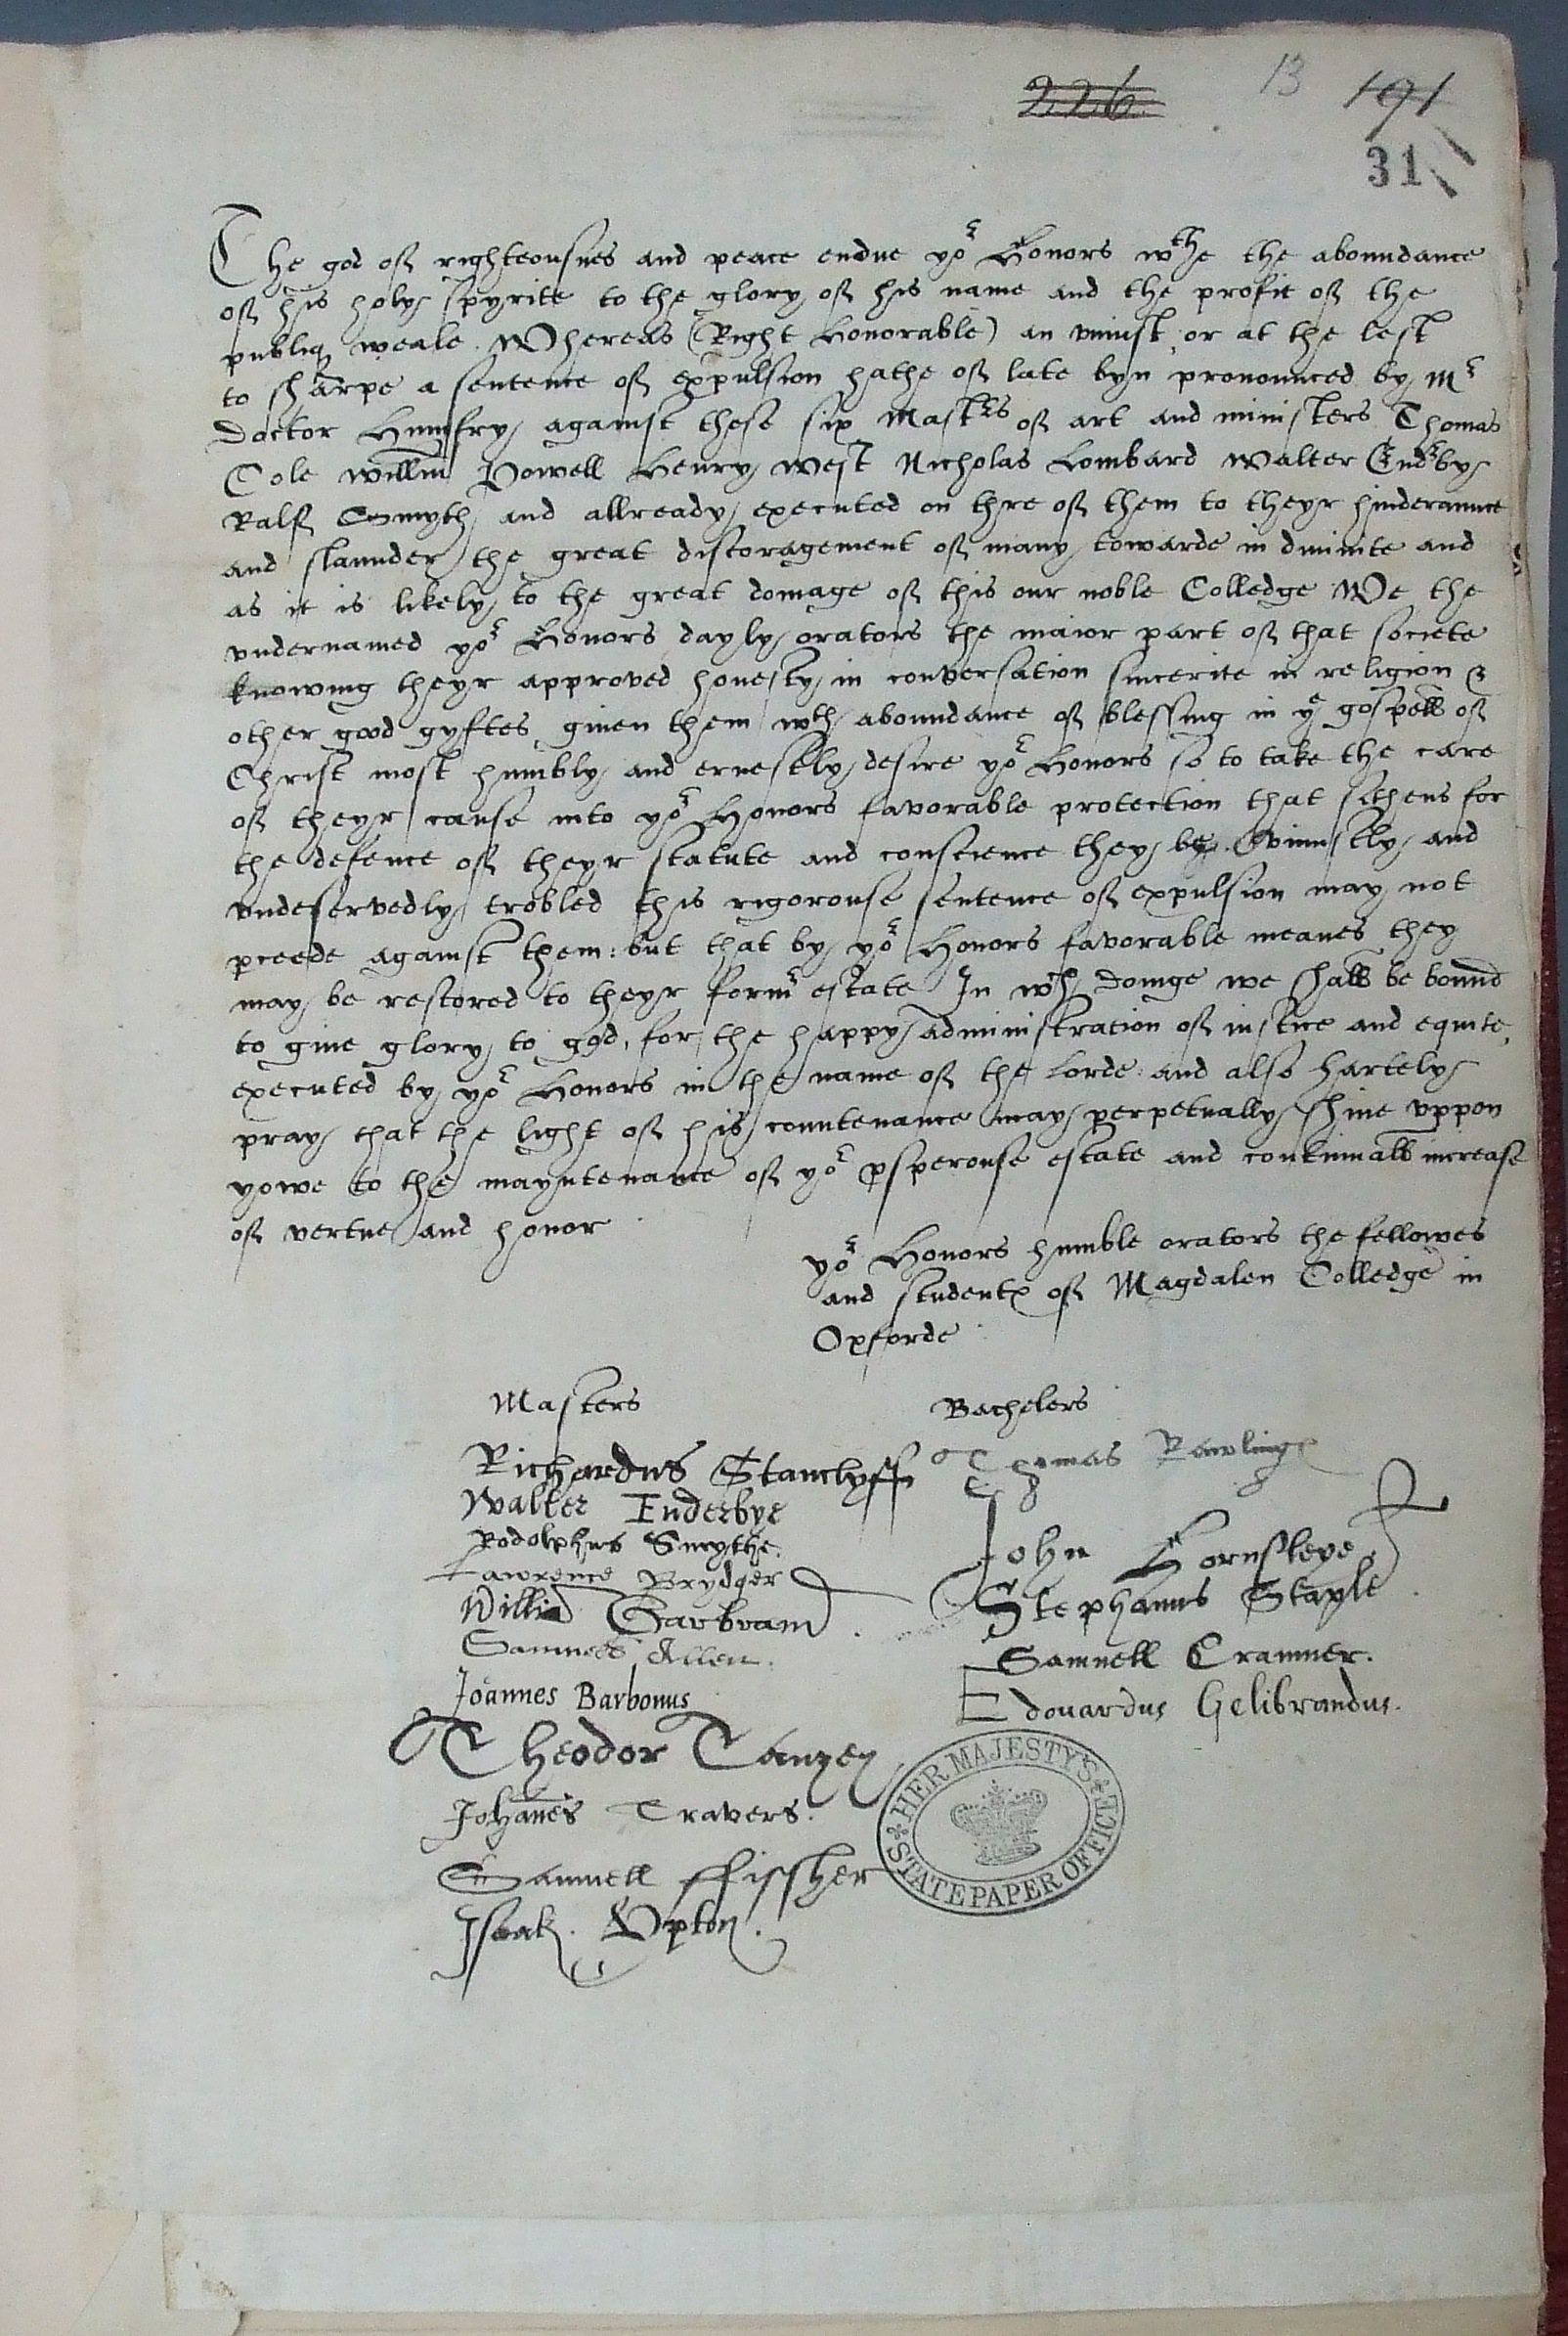 226
13
191
31
The god off righteousnes and peace endue yor Honors wthe the aboundance
off his holy spyrite to the glory off his name and the profit off the
publiq weale. Whereas (Right Honorable) an vniust, or at the lest
to sharpe a sentence off expulsion hathe off late byn pronounced by Mr
Doctor Humfry against these six Mastrs off art and ministers Thomas
Cole Willm Powell Henry West Nicholas Lombard Walter Endrby
Ralff Smyth, and allready executed on thre off them to theyr hinderaunce
and slaunder the great discoragement off many towarde in diuinite and
as it is likely to the great domage off this our noble Colledge We the
vndernamed yor Honors dayly orators the maior part off that societe
knowing theyr approved honesty in conversation sincerite in religion &
other good gyftes giuen them wth aboundance off blessing in ye gospell off
Christ most humbly and ernestly desire yor Honors so to take the care
off theyr cause into yor Honors favorable protection that sithens for
the defence off theyr statute and conscience they be vniustly and
vndeservedly trobled this rigorouse sentence off expulsion may not
pceede against them: but that by yor Honors favorable meanes they
may be restored to theyr formr estate In wch doinge we shall be bound
to giue glory to god, for the happy administration off iustice and equite,
executed by yor Honors in the name off the Lorde: and also hartely
pray that the light off his countenance may perpetually shine vppon
yowe to the mayntenance off yor psperouse estate and continuall increase
off vertue and honor
yor Honors humble orators the fellowes
and students off Magdalen Colledge in
Oxforde
Masters
Bachelers
Richardus Stanclyff
Thomas Rawlings
Walter Enderbye
Rodolphus Smythe.
John Hornsleye
Lawrence Brydger
Stephanus Staple
Willia Garbrand.
Samuell Allen.
Samuell Cranmer.
Joannes Barbonus
Edouardus Gelibrandus.
Theodor
Johanes Travers.
Samuell ffissher
Isaak. Vpton.
HER MAJESTY'S
STATE PAPER OFFICE